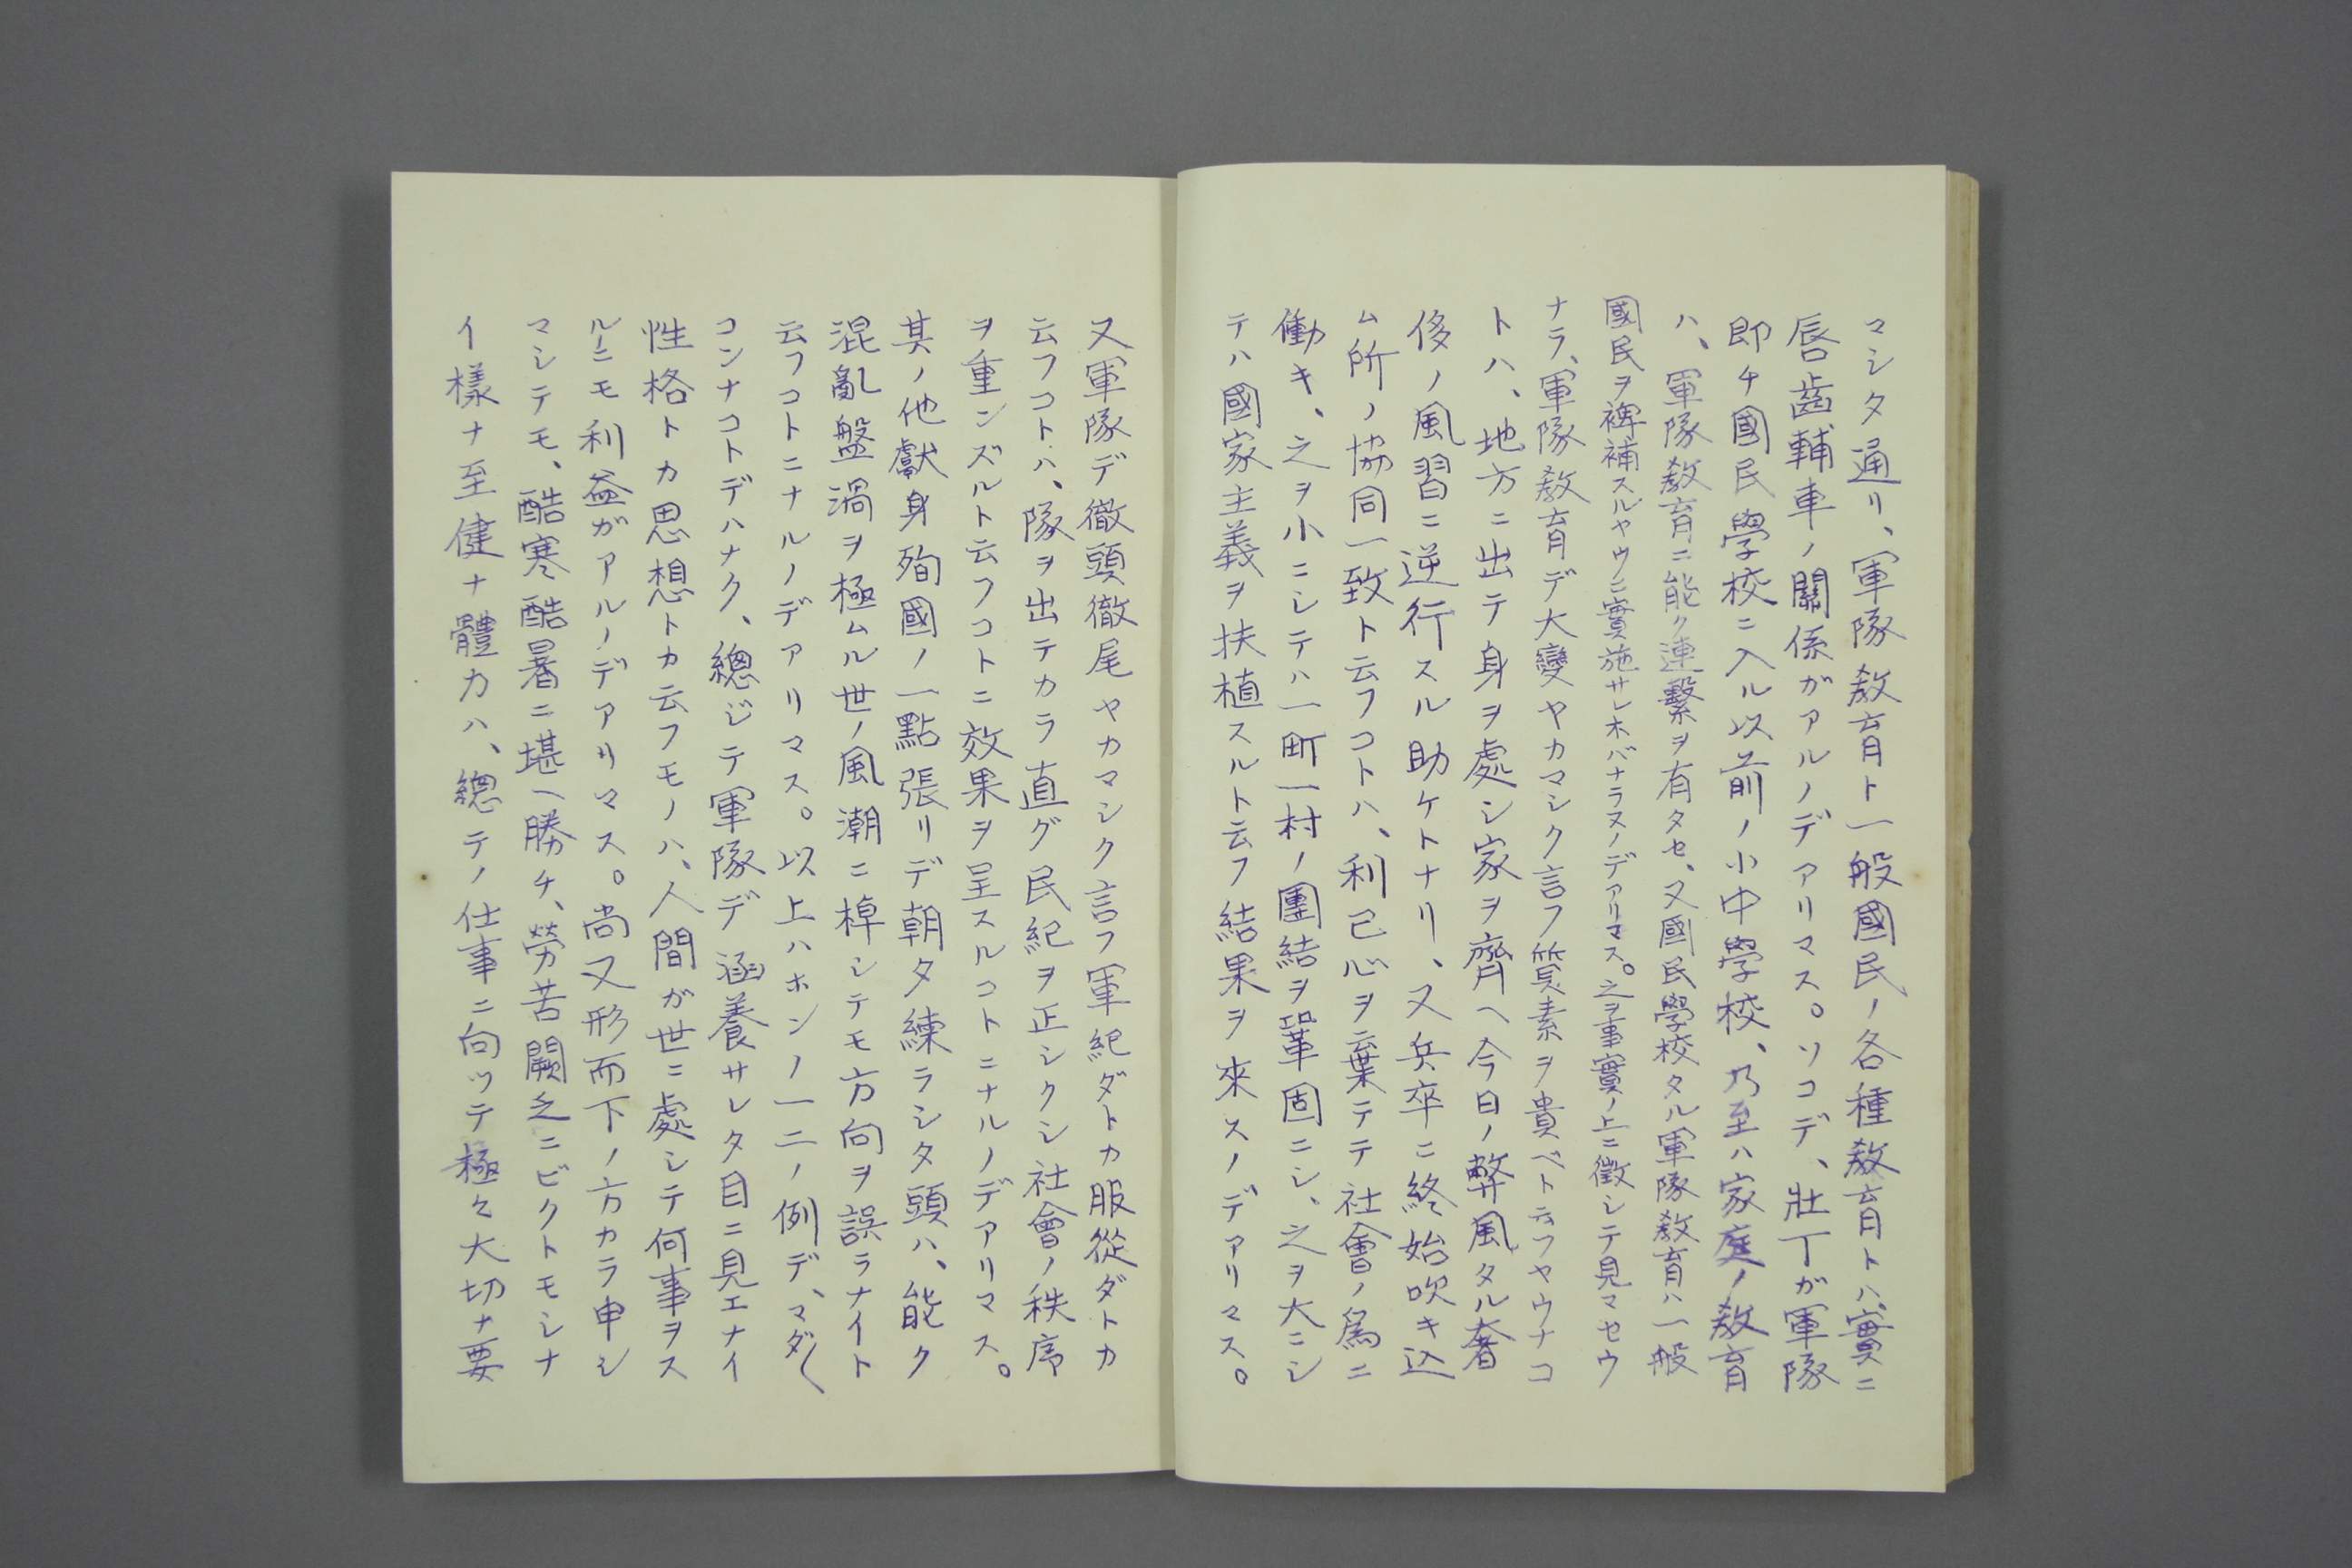 マシタ通リ、軍隊敎育ト一般國民ノ各種敎育トハ、實ニ
唇齒輔車ノ關係ガアルノデアリマス。ソコデ、壯丁ガ軍隊
即チ國民學校ニ入ル以前ノ小中學校、乃至ハ家庭ノ敎育
ハ、軍隊敎育ニ能ク連繫ヲ有タセ、又國民學校タル軍隊敎育ハ一般
國民ヲ裨補スルヤウニ實施サレネバナラヌノデアリマス。之ヲ事實ノ上ニ徵シテ見マセウ
ナラ、軍隊敎育デ大變ヤカマシク言フ質素ヲ貴ベト云フヤウナコ
トハ、地方ニ出テ身ヲ處シ家ヲ齊ヘ今日ノ弊風タル奢
侈ノ風習ニ逆行スル助ケトナリ、又兵卒ニ終始吹キ込
ム所ノ協同一致ト云フコトハ、利己心ヲ棄テテ社會ノ爲ニ
働キ、之ヲ小ニシテハ一町一村ノ團結ヲ鞏固ニシ、之ヲ大ニシ
テハ國家主義ヲ扶植スルト云フ結果ヲ來スノデアリマス。
又軍隊デ徹頭徹尾ヤカマシク言フ軍紀ダトカ服從ダトカ
云フコトハ、隊ヲ出テカラ直グ民紀ヲ正シクシ社會ノ秩序
ヲ重ンズルト云フコトニ效果ヲ呈スルコトニナルノデアリマス。
其ノ他獻身殉國ノ一點張リデ朝夕練ラシタ頭ハ、能ク
混亂盤渦ヲ極ムル世ノ風潮ニ棹シテモ方向ヲ誤ラナイト
云フコトニナルノデアリマス。以上ハホンノ一二ノ例デ、マダ〱
コンナコトデハナク、總ジテ軍隊デ涵養サレタ目ニ見エナイ
性格トカ思想トカ云フモノハ、人間ガ世ニ處シテ何事ヲス
ルニモ利益ガアルノデアリマス。尚又形而下ノ方カラ申シ
マシテモ、酷寒酷暑ニ堪ヘ勝チ、勞苦闕乏ニビクトモシナ
イ樣ナ至健ナ體力ハ、總テノ仕事ニ向ツテ極々大切ナ要